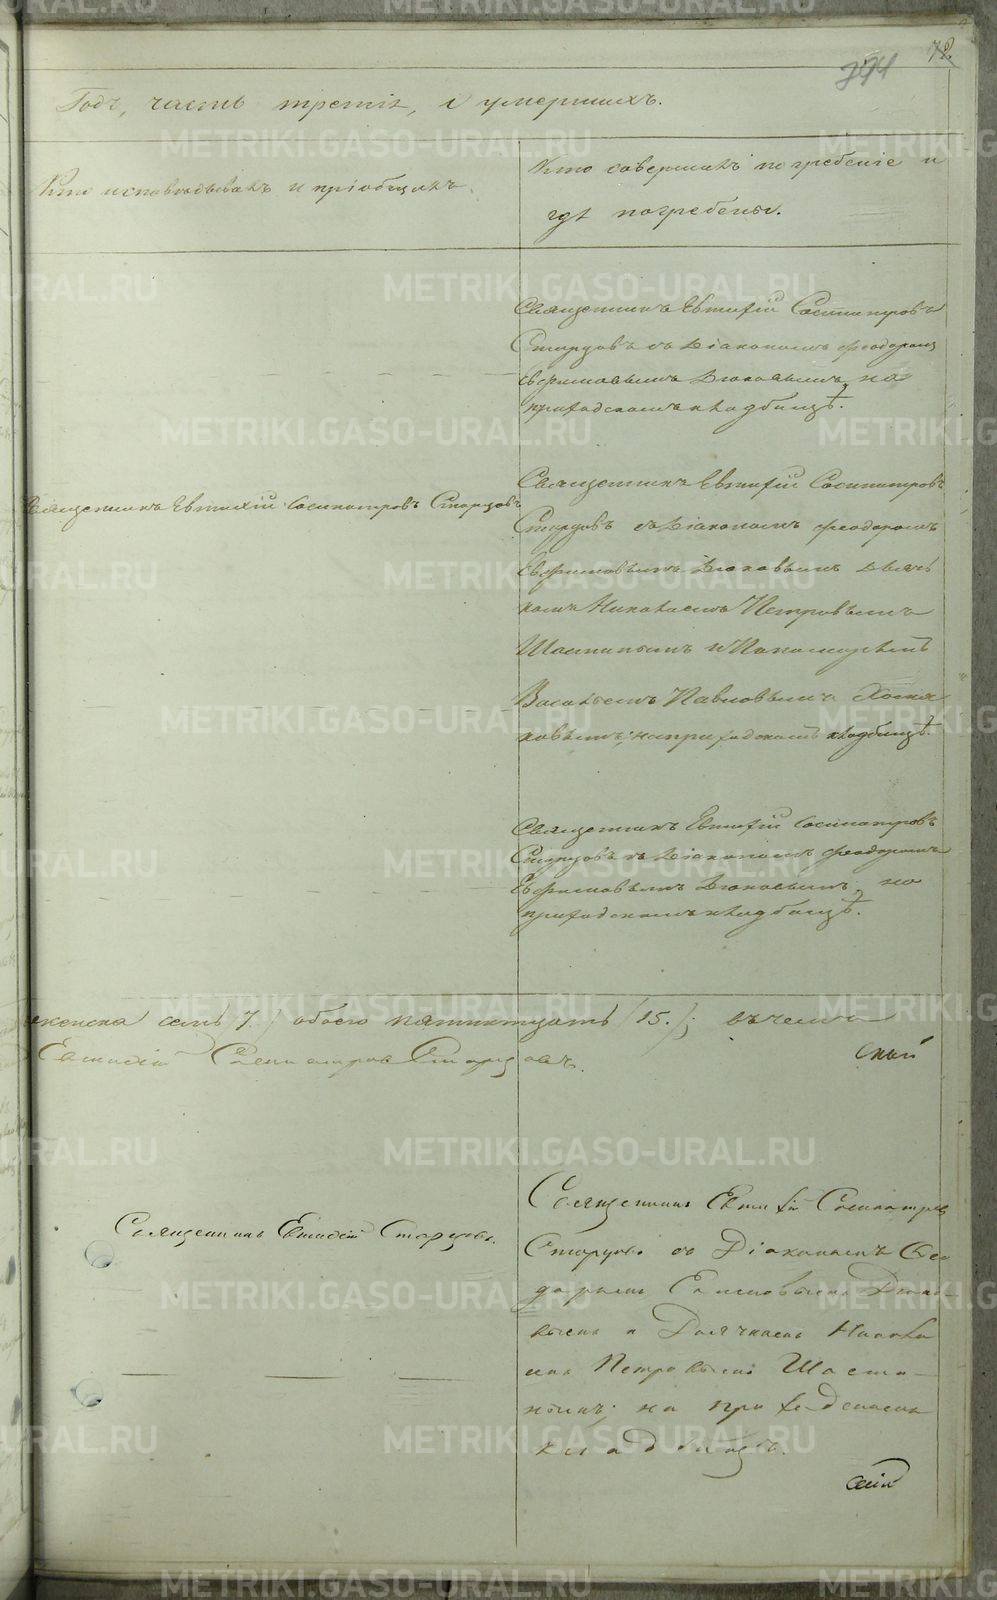 274
72
Годъ, часть третія, о умершихъ.
Кто исповѣдывалъ и пріобщалъ.
Кто совершалъ погребеніе и
гдѣ погребены.
Священникъ Евтихій Сосипатровъ
Старцовъ съ Діакономъ Феодоромъ
Евфимовымъ Дюковымъ, на
приходскомъ кладбищѣ.
Священникъ Евтихій Сосипатровъ Старцовъ
Священникъ Евтихій Сосипатровъ
Старцовъ съ Діакономъ Феодоромъ
Евфимовымъ Дюковымъ дьяч
комъ Николаемъ Петровымъ
и Пономаремъ
Васильемъ Павловымъ
ковымъ, на приходскомъ кладбищѣ.
Священникъ Евтихій Сосипатровъ
Старцовъ съ Діакономъ Феодоромъ
Евфимовымъ Дюковымъ, на
приходскомъ кладбищѣ.
женска семь 7) обоего пятнатцать (15.); въ чемъ
Евтихій Сосипатровъ Старцовъ.
Священникъ Евтихій Старцовъ.
Священникъ Евтихій Сосипатровъ
Старцовъ съ Діакономъ Фео
доромъ Дюко-
вымъ и Дьячкомъ Никола
емъ Петровымъ
на приходскомъ
кладбищѣ.
METRIKI.GASO-URAL.RU